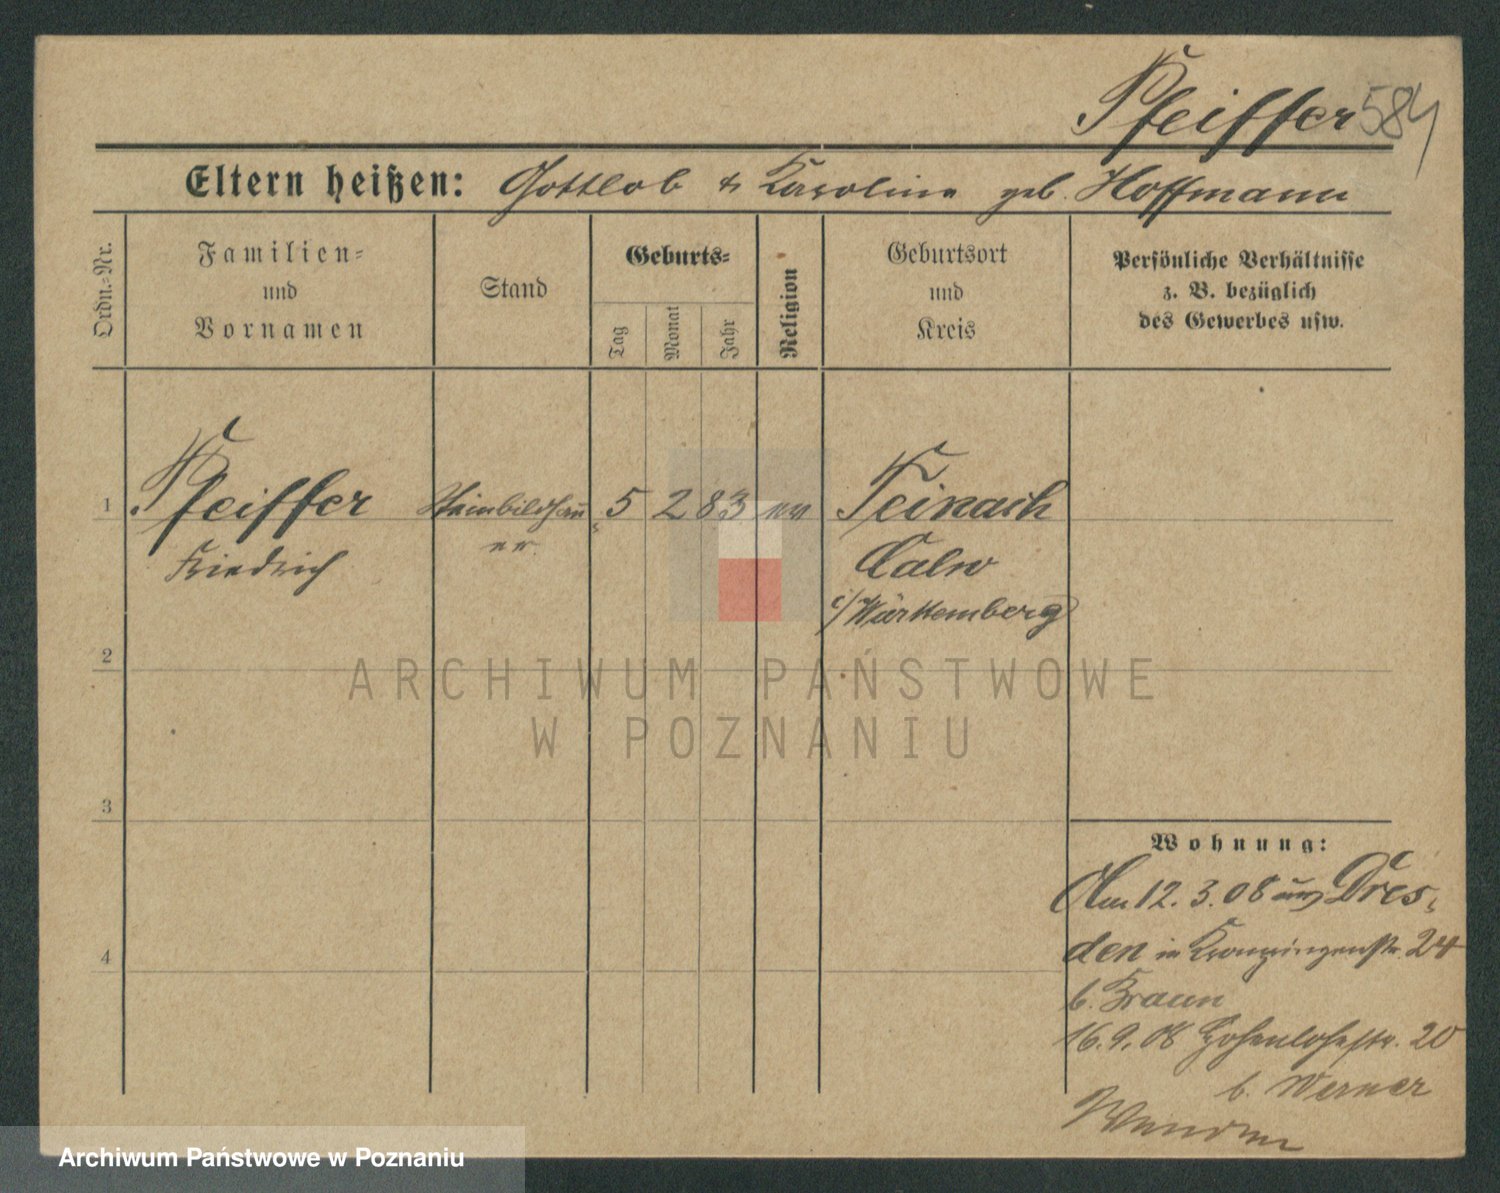 Pfeiffer 584
Eltern heißen: Gottlob & Karoline geb. Hoffmann
Ordn.-Nr.
Familien-
und
Vornamen
Stand
Geburts-
Tag
Monat
Jahr
Religion
Geburtsort
und
Kreis
Persönliche Verhältnisse
z. B. bezüglich
des Gewerbes usw.
1 Pfeiffer Steinbildhau- 5 2 83 ev Teinach
er
Friedrich Calw
i/Württemberg
2
3
4
Wohnung:
Am 12.3.08 aus Dres-
den in Kronprinzenstr. 24
b. Braun
16.9.08 Hohenlohestr. 20
b. Werner
ARCHIWUM PAŃSTWOWE
W POZNANIU
Archiwum Państwowe w Poznaniu